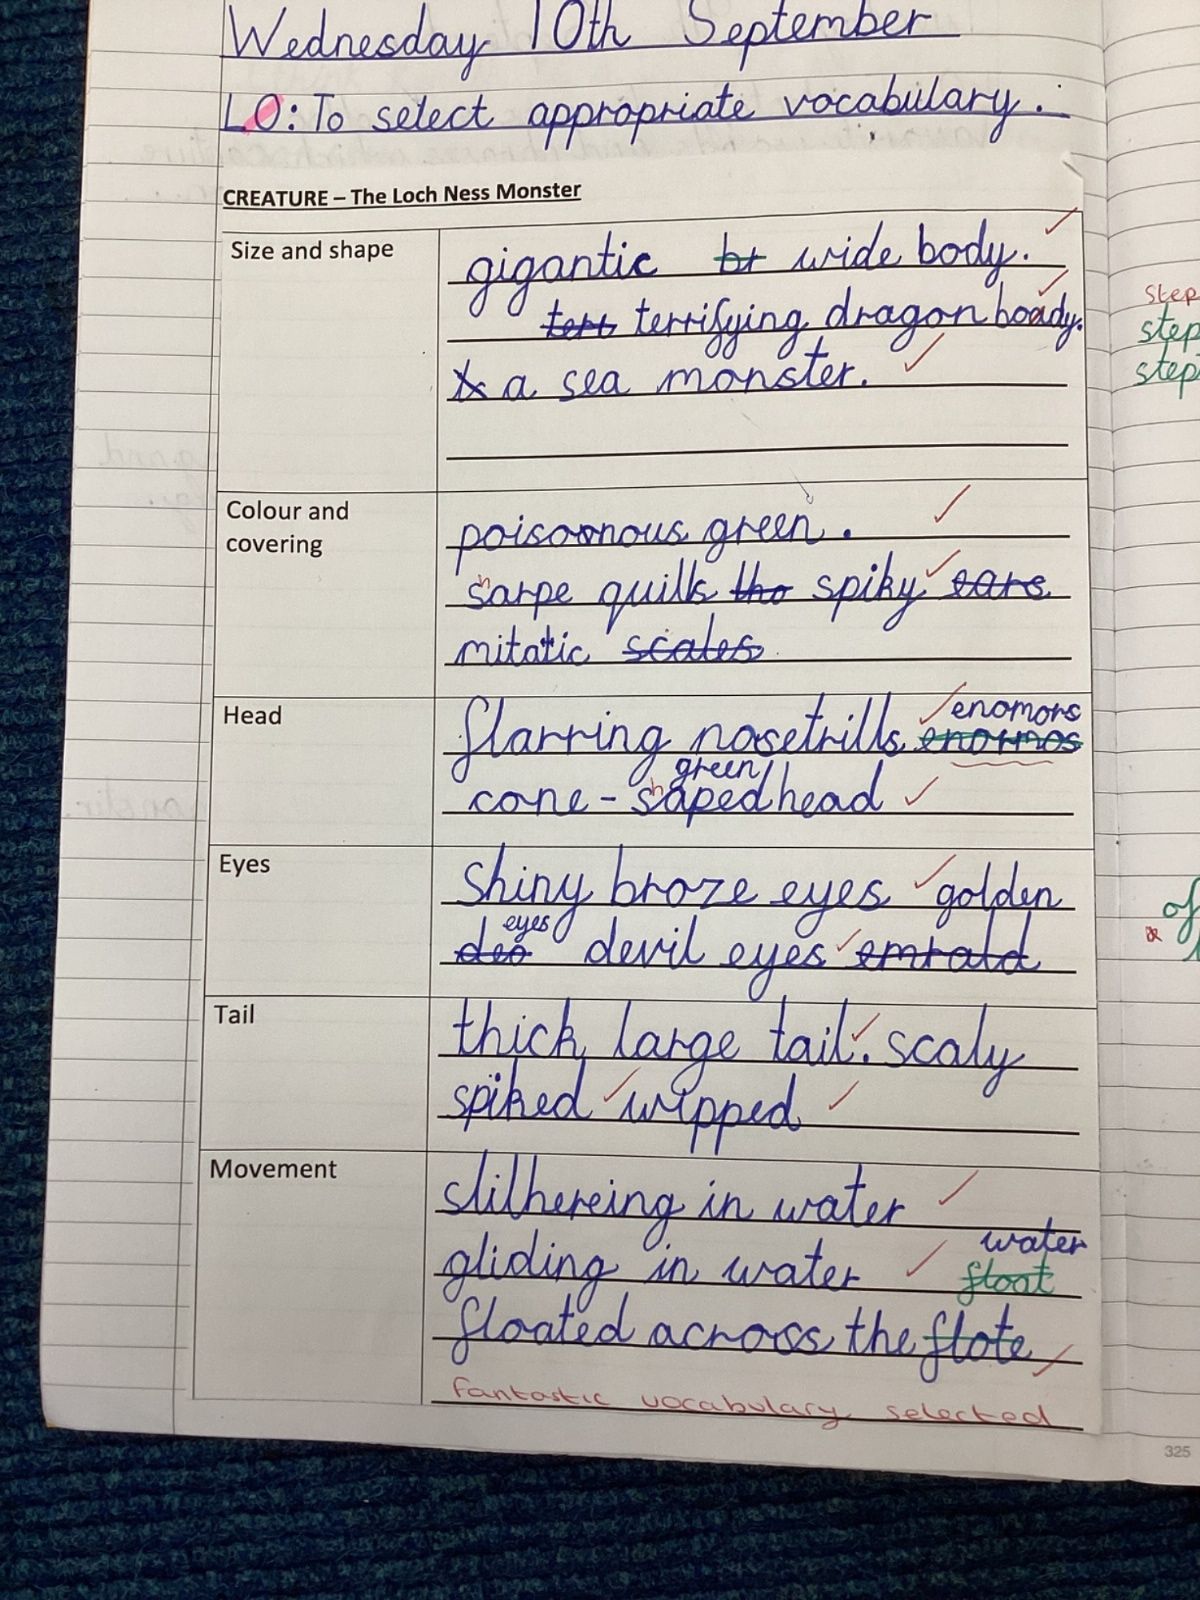 Wednesday 10th September
LO: To select appropriate vocabulary.
CREATURE – The Loch Ness Monster
Size and shape
gigantic bt wide body.
terr terrifying dragon boady.
a sea monster.
Colour and
covering
poisoonous green.
sharpe quills tho spiky ears
mitatic scales
Head
flarring nosetrills enomors
enormos
green
cone-shaped head
Eyes
Shiny broze eyes golden
eyes
deo devil eyes emrald
Tail
thick large tail. scaly
spiked wipped
Movement
slithereing in water
water
gliding in water float
floated across the flote
fantastic vocabulary selected
step
step
step
of
325